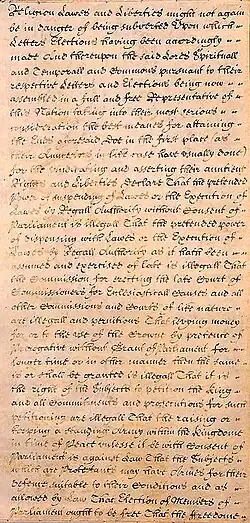 Religion Lawes and Liberties might not againe
be in danger of being subverted Upon which
Letters Elections having been accordingly
made And thereupon the said Lords Spirituall
and Temporall and Commons pursuant to their
respective Letters and Elections being now
assembled in a full and free Representative of
this Nation takeing into their most serious
consideration the best meanes for attaining
the Ends aforesaid Doe in the first place (as
their Auncestors in like case have usually done)
for the vindicating and asserting their auntient
Rights and Liberties, Declare That the pretended
Power of suspending of Lawes or the Execution of
Lawes by Regall Authority without Consent of
Parliament is illegall That the pretended power
of dispensing with Lawes or the Execution of
Lawes by Regall Authority as it hath been
assumed and exercised of late is illegall That
the Commission for erecting the late Court of
Commissioners for Ecclesiasticall Causes and all
other Commissions and Courts of like nature
are illegall and pernicious That levying money
for or to the use of the Crowne by pretence of
Prerogative without Grant of Parliament for
longer time or in other manner then the same
is or shall be granted is illegall That it is
the right of the Subjects to petition the King
and all Committments and prosecutions for such
petitioning are illegall That the raising or
keeping a standing Army within the Kingdome
in time of Peace unlesse it be with Consent of
Parliament is against Law That the Subjects
which are Protestants may have Armes for their
defence suitable to their Conditions and as
allowed by Law That Election of Members of
Parliament ought to be free That the freedome